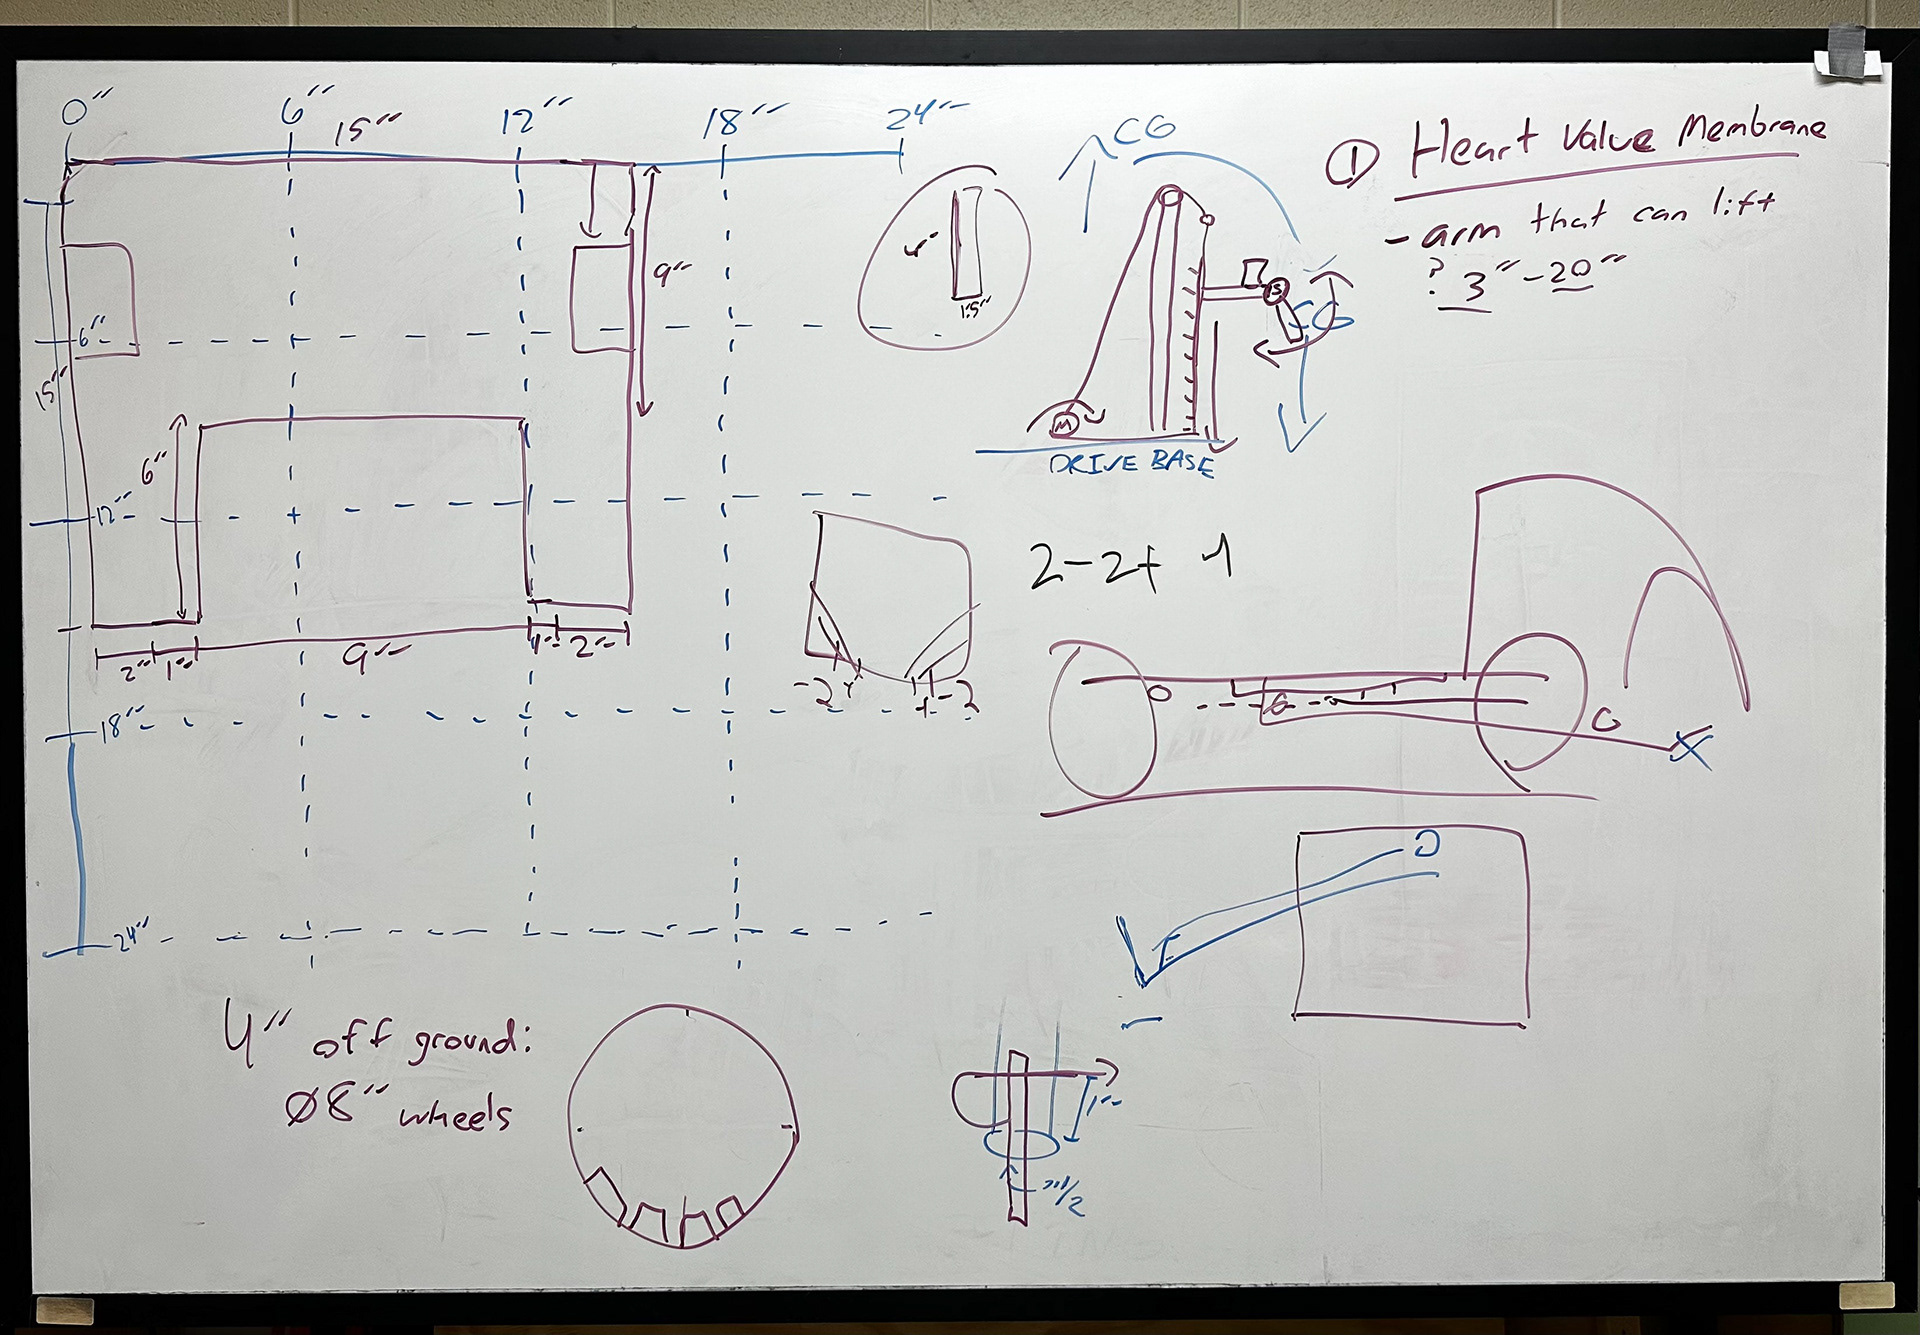 0"
6"
12"
18"
24"
15"
① Heart Valve Membrane
- arm that can lift
? 3" - 20"
CG
9"
4"
1.5"
S
CG
6"
15"
M
DRIVE BASE
6"
12"
2"
1"
9"
1"
2"
2-2+
-2
-2
18"
24"
4" off ground:
Ø8" wheels
1"